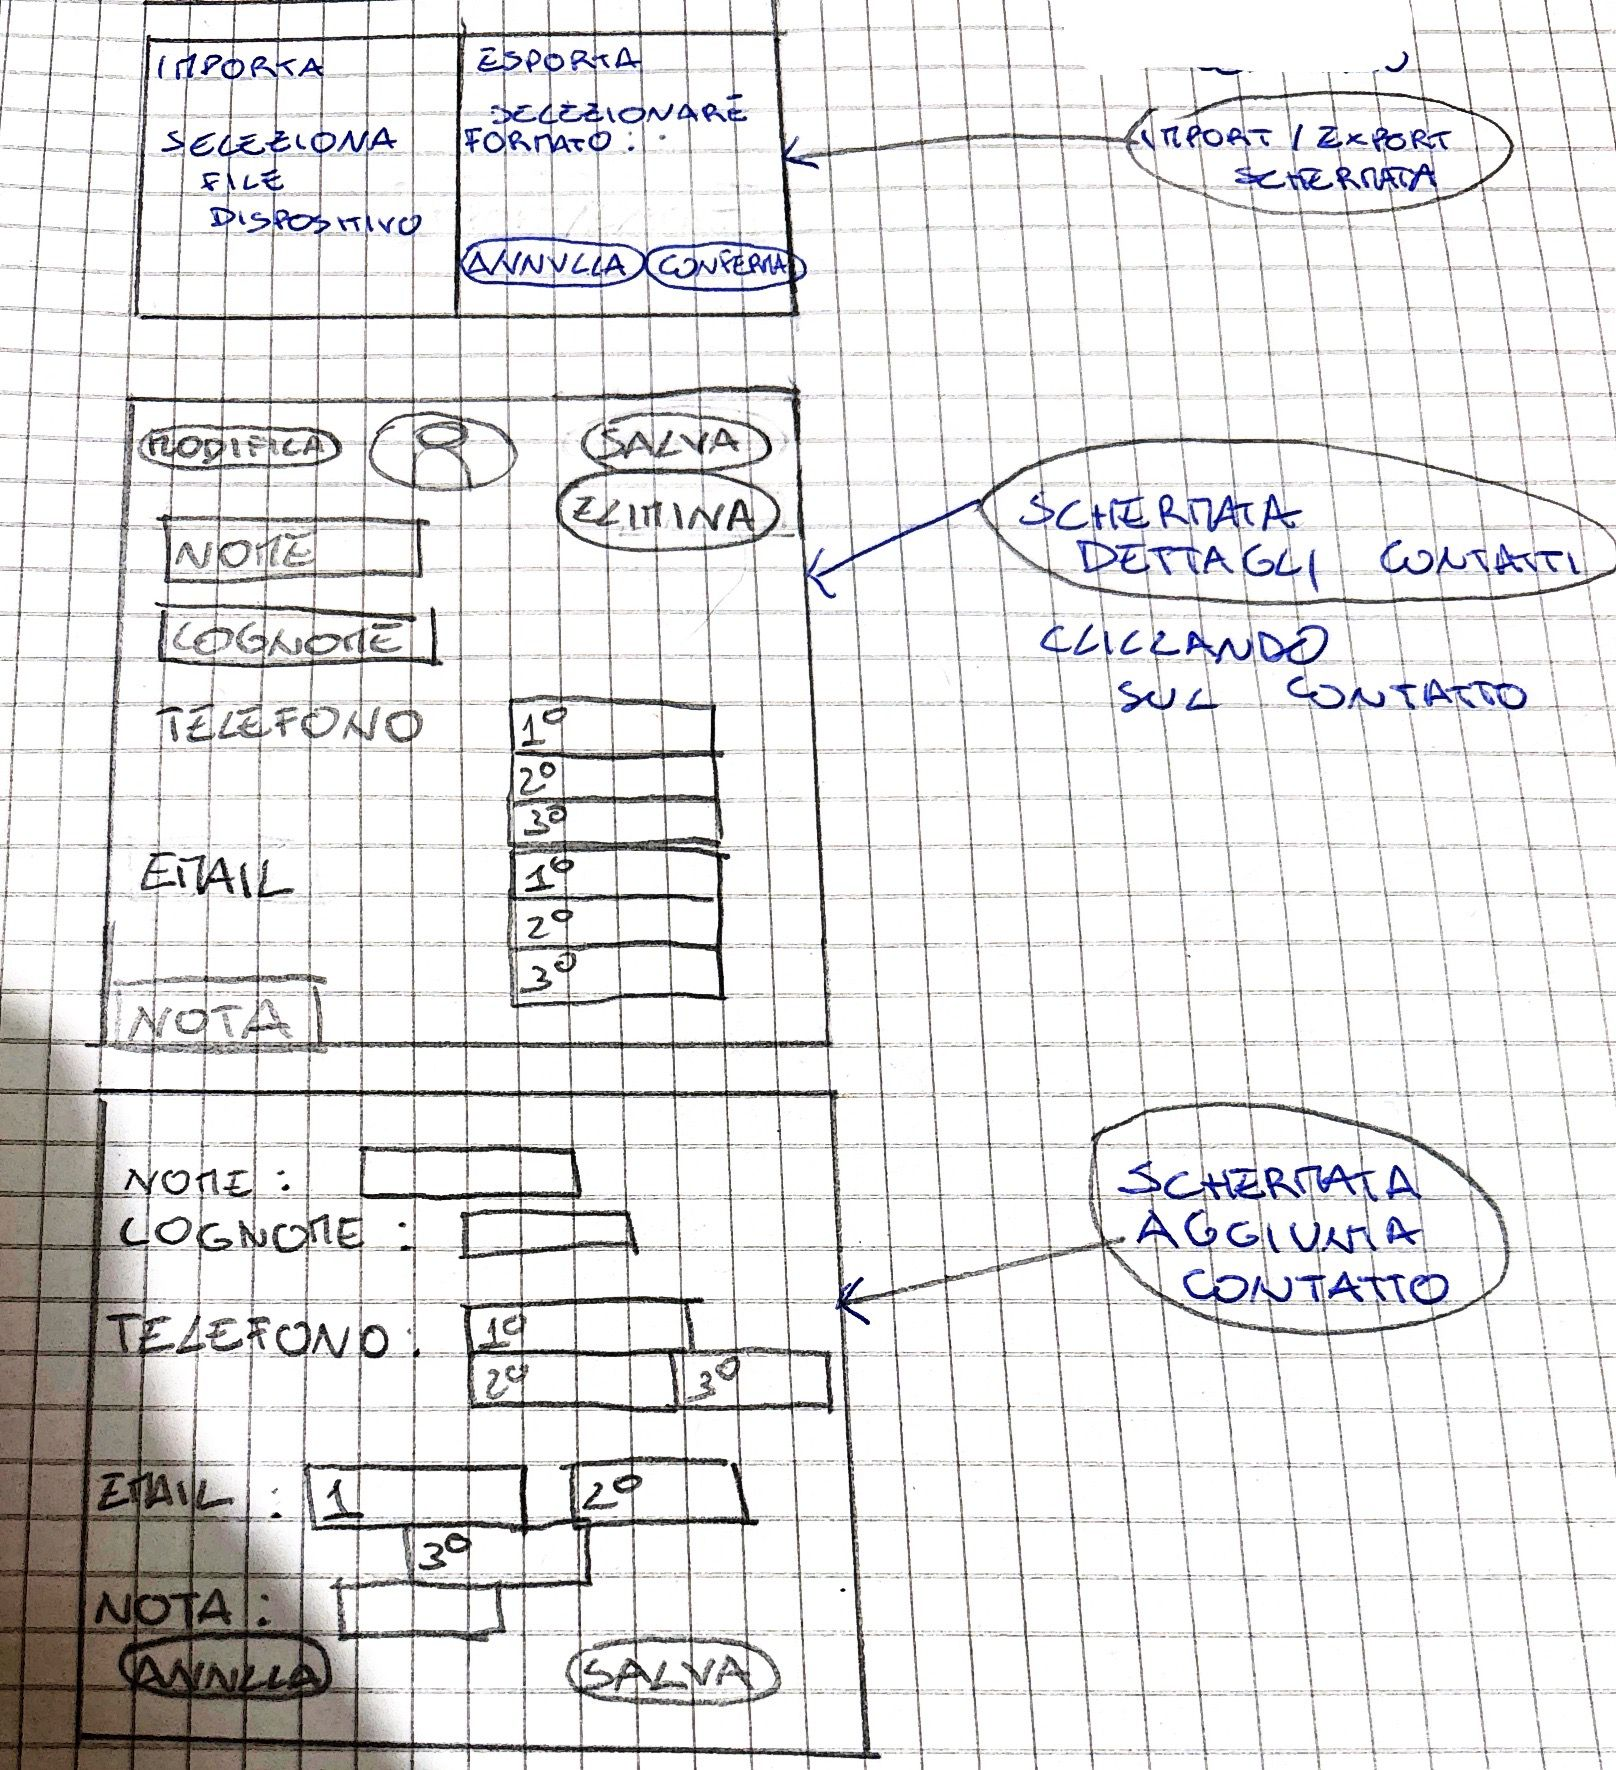 IMPORTA
SELEZIONA
FILE
DISPOSITIVO
ESPORTA
SELEZIONARE
FORMATO :
ANNULLA CONFERMA
IMPORT / EXPORT
SCHERMATA
MODIFICA SALVA
ELIMINA
NOME
COGNOME
TELEFONO 1º
2º
3º
EMAIL 1º
2º
3º
NOTA
SCHERMATA
DETTAGLI CONTATTI
CLICCANDO
SUL CONTATTO
NOME :
COGNOME :
TELEFONO : 1º
2º 3º
EMAIL : 1 2º
3º
NOTA :
ANNLLA SALVA
SCHERMATA
AGGIUNTA
CONTATTO